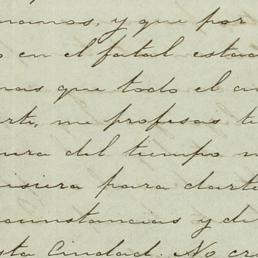 manos, y que por
en el fatal estad
mas que todo el ca
me profesas te
del tiempo
para darte
cunstancias y di
sta Ciudad. No cre